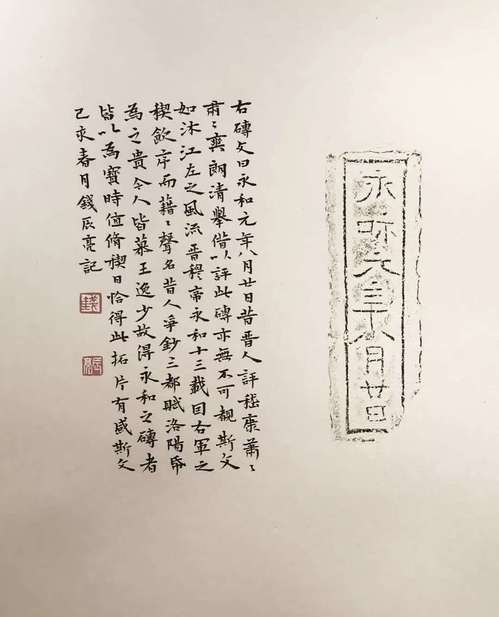 永和元年八月廿日
右磚文曰永和元年八月廿日昔晋人評嵇康蕭〻
肅〻爽朗清舉借以評此磚亦無不可覩斯文
如沐江左之風流晋穆帝永和十三載因右軍之
禊飲序而藉〻聲名昔人爭鈔三都賦洛陽帋
為之貴今人皆慕王逸少故得永和之磚者
皆以為寶時值脩禊日恰得此拓片有感斯文
己亥春月錢辰亮記